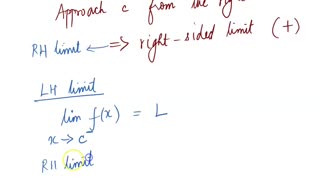 Approach c from the
RH limit <=> right-sided limit (+)
LH limit
lim f(x) = L
x → c⁻
RH limit